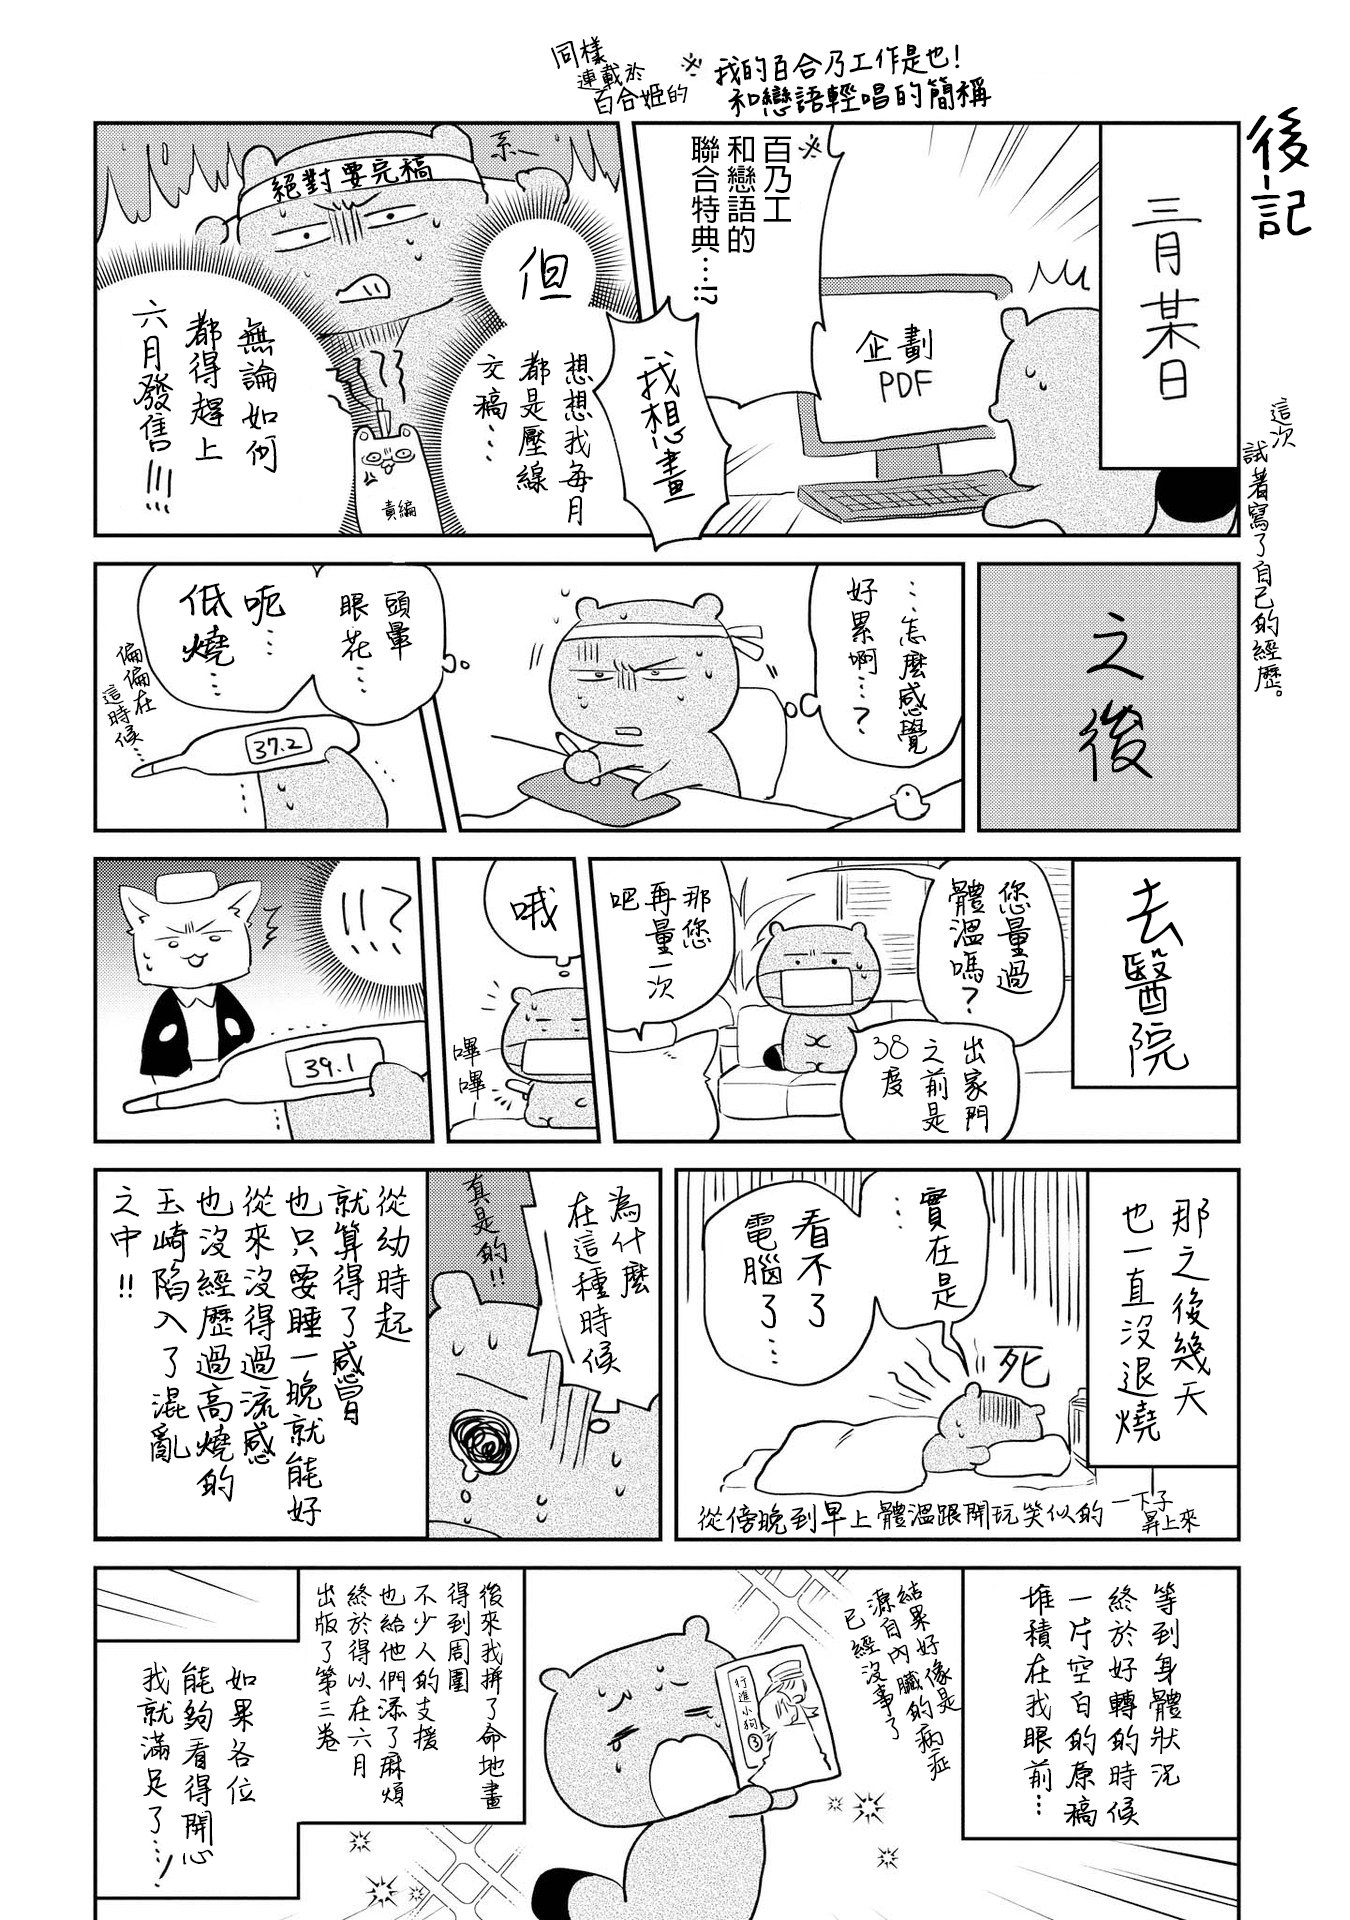 後記
這次
試著寫了自己的經歷。
同樣
連載於
百合姬的
※我的百合乃工作是也！
和戀語輕唱的簡稱
三月某日
企劃
PDF
※
百乃工
和戀語的
聯合特典…!?
我想畫
但
想想我每月
都是壓線
交稿…
絕對要完稿
責編
無論如何
都得趕上
六月發售!!!!
之後
…怎麼感覺
好累啊…？
頭暈
眼花…
呃…
低燒…
偏偏在
這時候…
37.2
去醫院
您量過
體溫嗎？
出家門
之前是
38度
那您
再量一次
吧
哦
嗶嗶
!!?
39.1
那之後幾天
也一直沒退燒
實在是
…
看不了
電腦了…
死
從傍晚到早上體溫跟開玩笑似的一下子
昇上來
為什麼
在這種時候
真是的!!
從幼時起
就算得了感冒
也只要睡一晚就能好
從來沒得過流感
也沒經歷過高燒的
玉崎陷入了混亂
之中!!
等到身體狀況
終於好轉的時候
一片空白的原稿
堆積在我眼前…
結果好像是
源自內臟的病症
已經沒事了
行進小狗③
後來我拼了命地畫
得到周圍
不少人的支援
也給他們添了麻煩
終於得以在六月
出版了第三卷
如果各位
能夠看得開心
我就滿足了…!